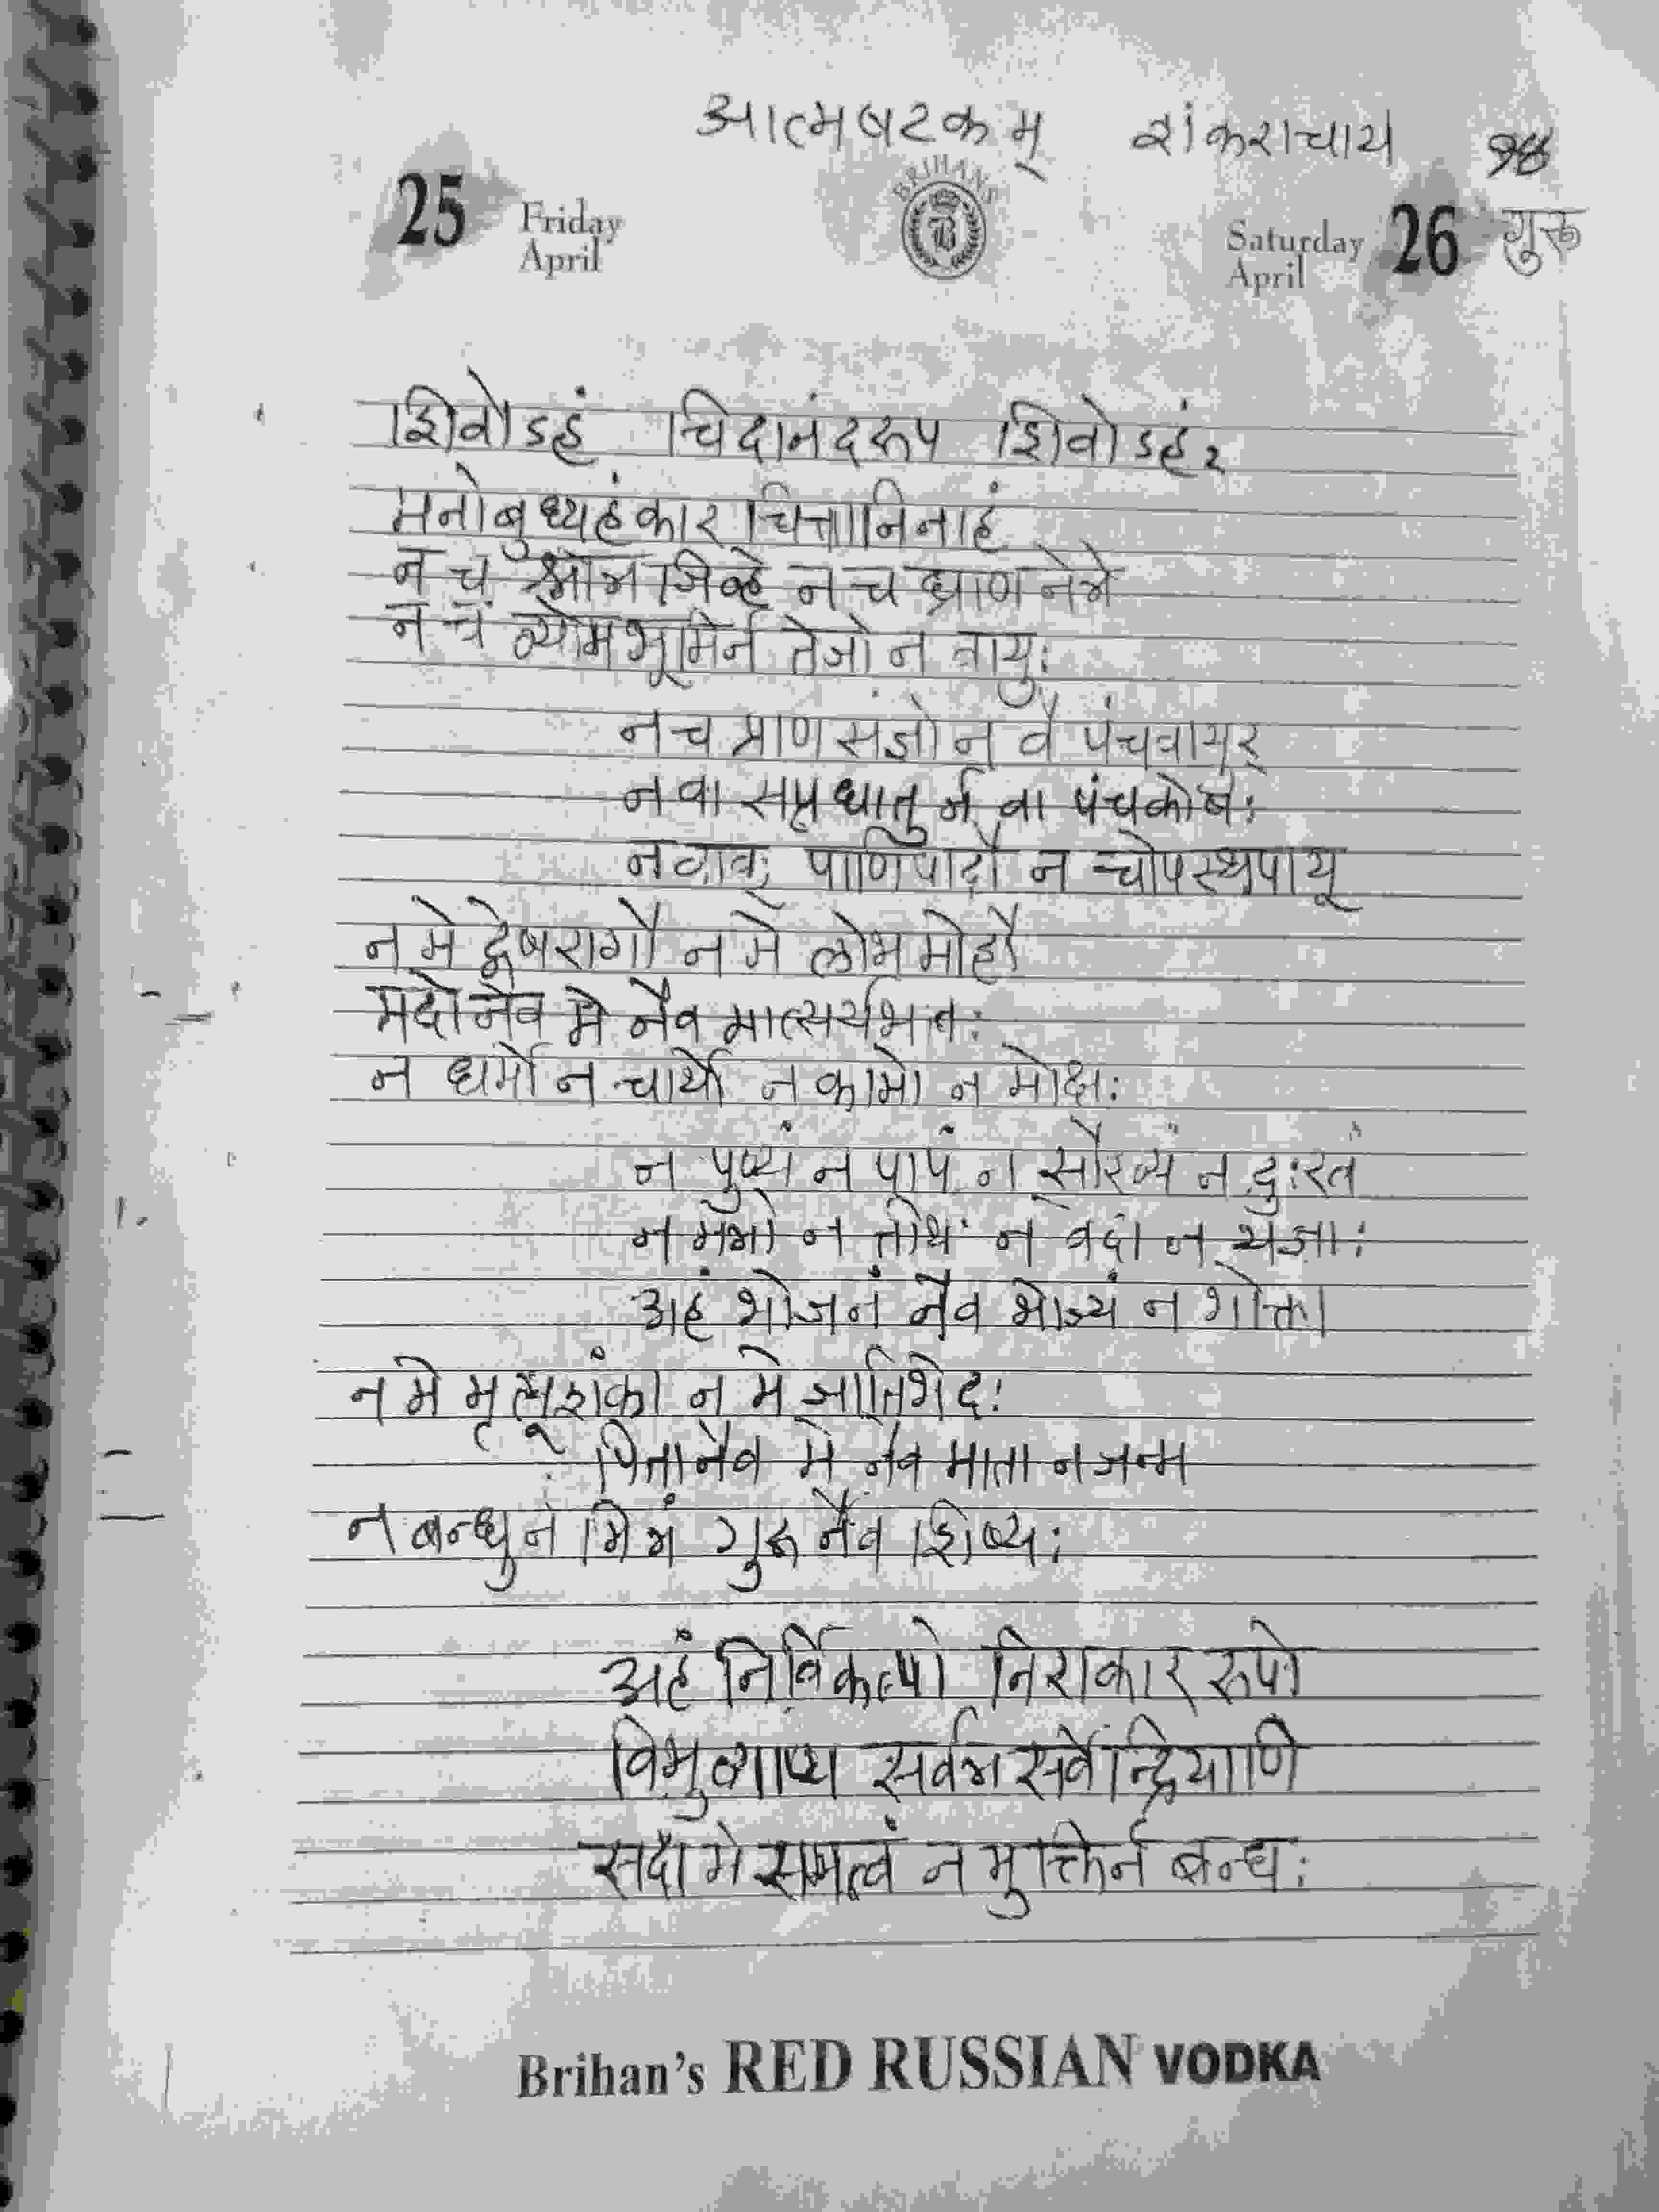 आत्मषटकम् शंकराचार्य १४
25 Friday April BRIHANS B Saturday April 26 गुरु
शिवोऽहं चिदानंदरूप शिवोऽहं २
मनोबुध्यहंकार चित्तानिनाहं
न च श्रोत्रजिव्हे न च घ्राण नेत्रे
न च व्योमभूमिर्न तेजो न वायुः
न च प्राण संज्ञो न वै पंचवायुर्
न वा सप्तधातु र्न वा पंचकोषः
नवाक् पाणिपादौ न चोपस्थपायू
न मे द्वेषरागौ न मे लोभ मोहौ
मदो नैव मे नैव मात्सर्यभावः
न धर्मो न चार्थो न कामो न मोक्षः
न पुण्यं न पापं न सौख्यं न दुःखं
न मंत्रो न तीर्थं न वेदा न यज्ञाः
अहं भोजनं नैव भोज्यं न भोक्ता
न मे मृत्यूशंका न मे जातिभेदः
पिता नैव मे नैव माता न जन्म
न बन्धु न मित्रं गुरू नैव शिष्यः
अहं निर्विकल्पो निराकार रुपो
विभुव्याप्य सर्वत्र सर्वेन्द्रियाणि
सदा मे समत्वं न मुक्तिर्न बन्धः
Brihan's RED RUSSIAN VODKA